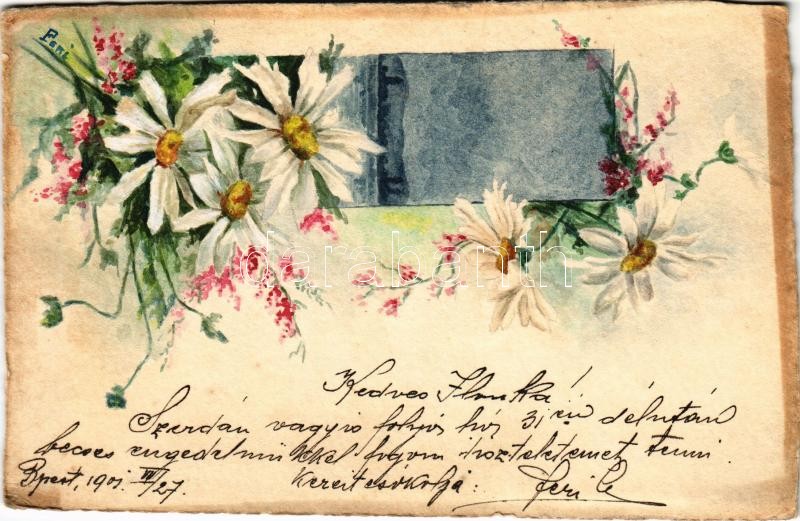 Feri
darabanth
Kedves Ilonka!
Szerdán vagyis folyó hó 31 én délután
becses engedelmükkel fogom tiszteletemet tenni
Bpest, 901. III/27. Kezeit csókolja: Feri